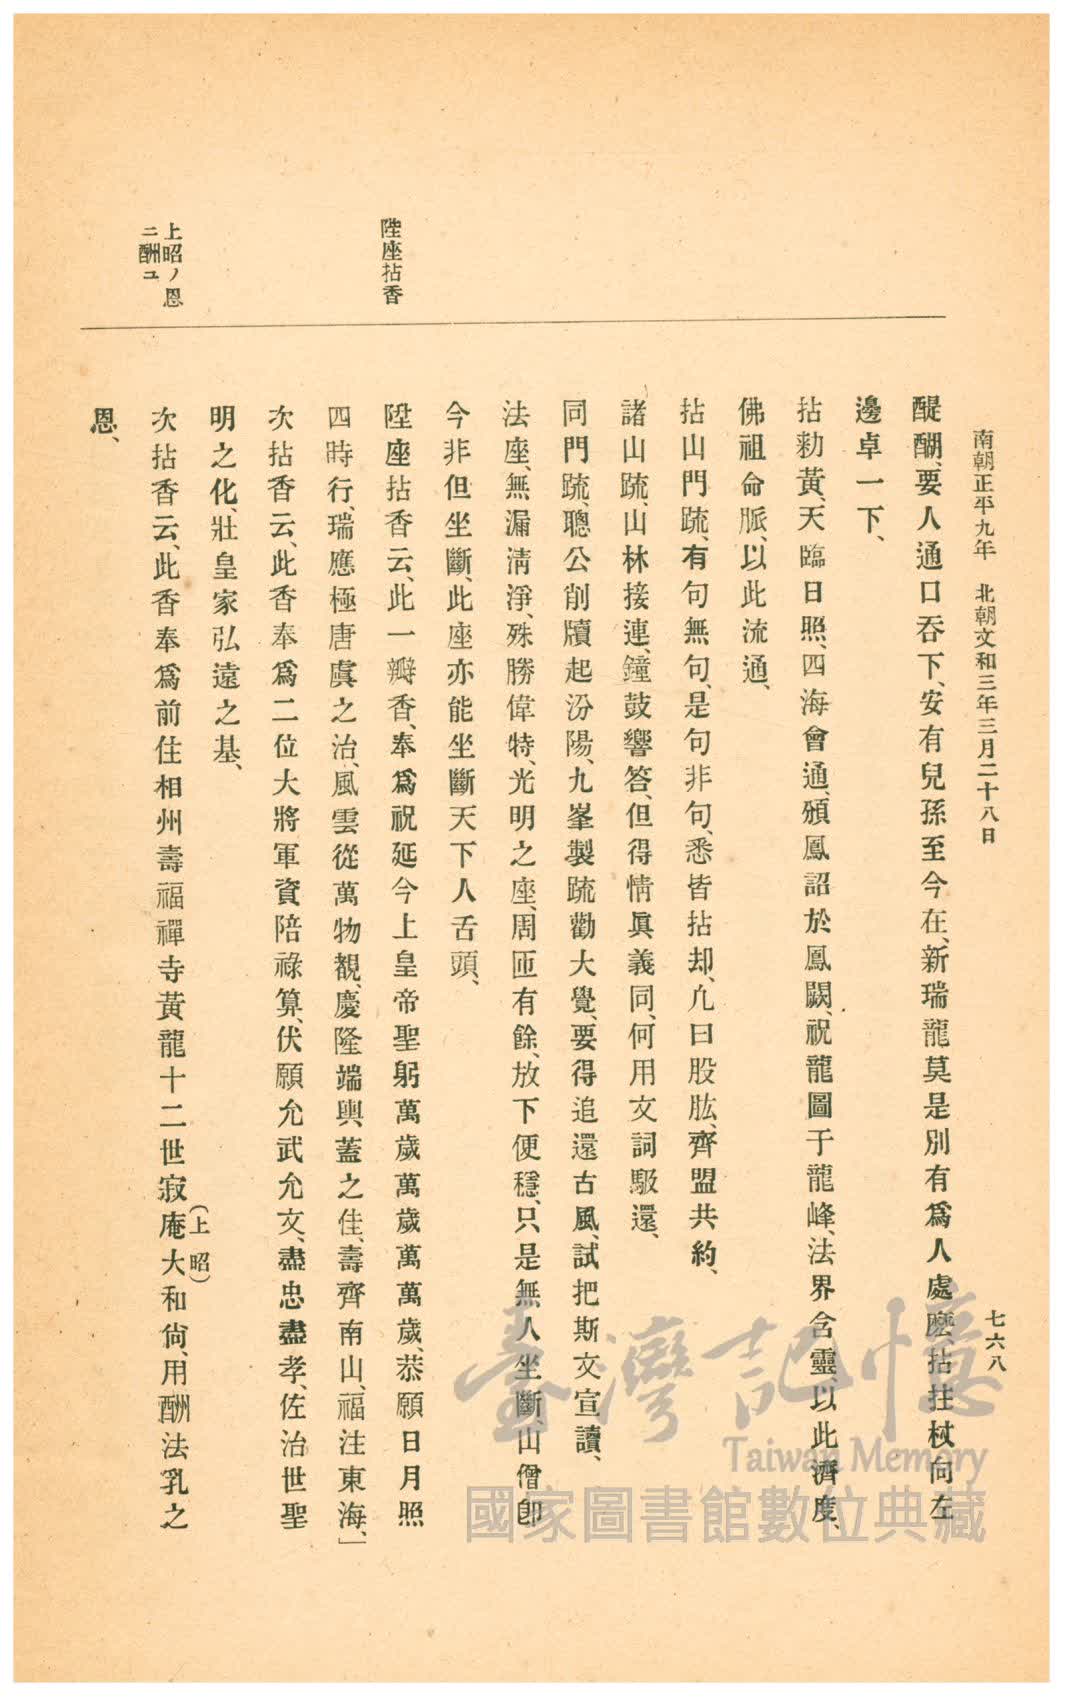 南朝正平九年　北朝文和三年三月二十八日
七六八
醍醐、要人通口呑下、安有兒孫至今在、新瑞龍莫是別有爲人處麽、拈拄杖向左
邊卓一下、
拈勑黃、天臨日照、四海會通、頒鳳詔於鳳闕、祝龍圖于龍峰、法界含靈、以此濟度、
佛祖命脈、以此流通、
拈山門疏、有句無句、是句非句、悉皆拈却、凢曰股肱、齊盟共約、
諸山疏、山林接連、鐘鼓響答、但得情眞義同、何用文詞駁還、
同門疏、聰公削牘起汾陽、九峯製疏勸大覺、要得追還古風、試把斯文宣讀、
法座、無漏淸淨、殊勝偉特、光明之座、周匝有餘、放下便穩、只是無人坐斷、山僧卽
今非但坐斷、此座亦能坐斷天下人舌頭、
陞座拈香
陞座拈香云、此一瓣香、奉爲祝延今上皇帝聖躬萬歲萬歲萬萬歲、恭願日月照
四時行、瑞應極唐虞之治、風雲從萬物覩、慶隆端輿蓋之佳、壽齊南山、福注東海、」
次拈香云、此香奉爲二位大將軍資陪祿算、伏願允武允文、盡忠盡孝、佐治世聖
明之化、壯皇家弘遠之基、
上昭ノ恩
ニ酬ユ
次拈香云、此香奉爲前住相州壽福禪寺黃龍十二世寂庵大和尙、用酬法乳之
(上昭)
恩、
臺灣記憶
Taiwan Memory
國家圖書館數位典藏